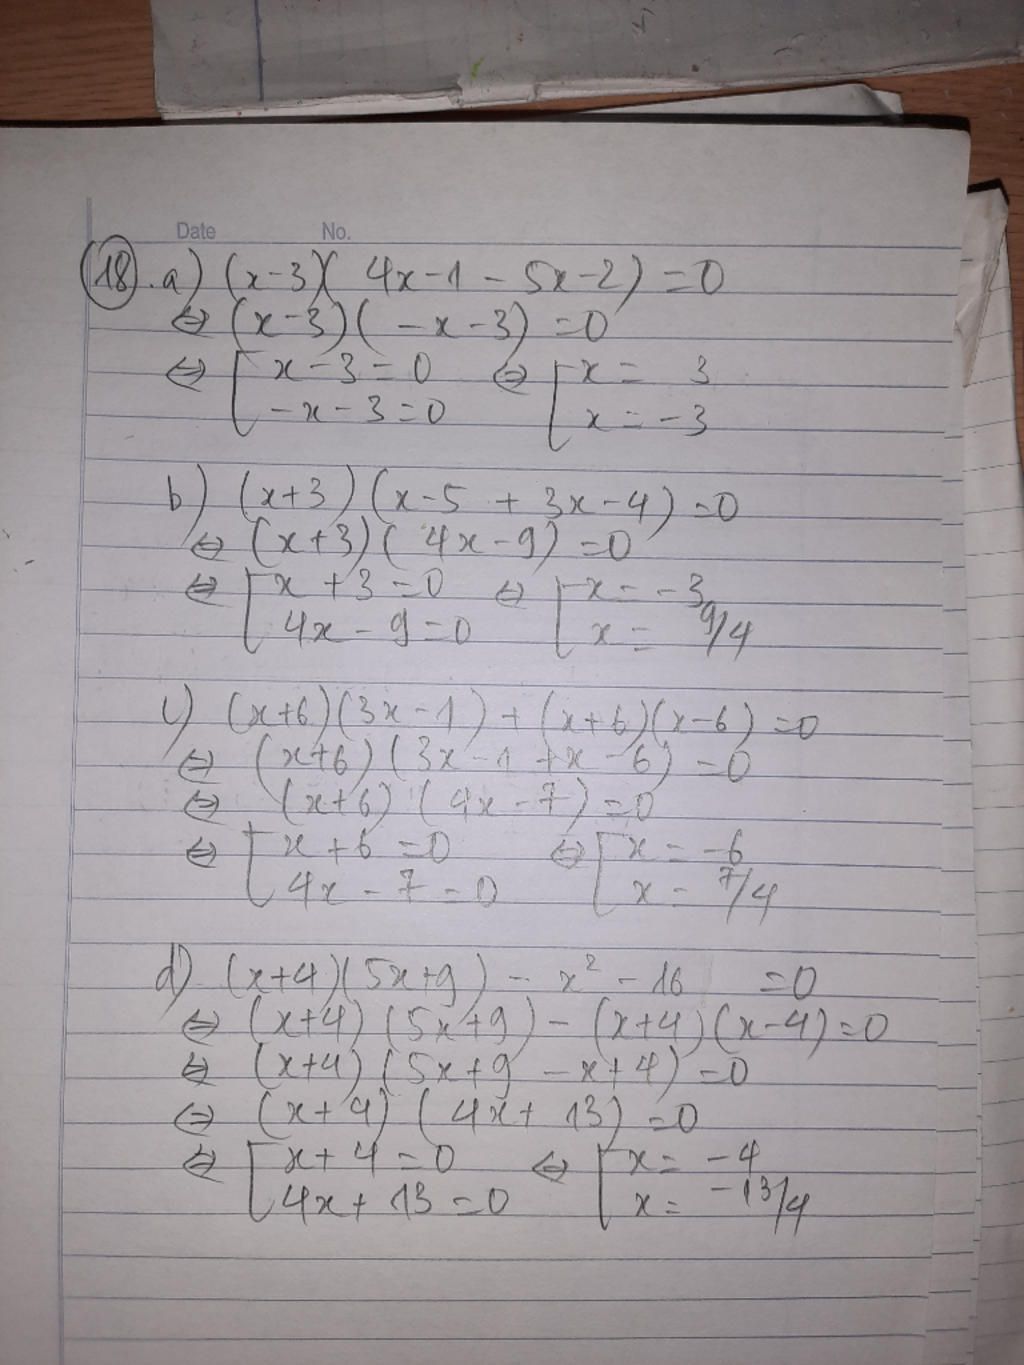 Date No.
18. a) (x-3)( 4x-1 - 5x-2) = 0
⇔ (x-3)( -x-3) = 0
⇔ [ x-3 = 0 ⇔ [ x = 3
-x-3 = 0 x = -3
b) (x+3)(x-5 + 3x-4) = 0
⇔ (x+3)( 4x-9) = 0
⇔ [ x+3 = 0 ⇔ [ x = -3
4x-9 = 0 x = 9/4
c) (x+6)(3x-1) + (x+6)(x-6) = 0
⇔ (x+6)(3x-1+x-6) = 0
⇔ (x+6)(4x-7) = 0
⇔ [ x+6 = 0 ⇔ [ x = -6
4x-7 = 0 x = 7/4
d) (x+4)(5x+9) - x² - 16 = 0
⇔ (x+4)(5x+9) - (x+4)(x-4) = 0
⇔ (x+4)(5x+9 - x+4) = 0
⇔ (x+4)(4x+13) = 0
⇔ [ x+4 = 0 ⇔ [ x = -4
4x+13 = 0 x = -13/4